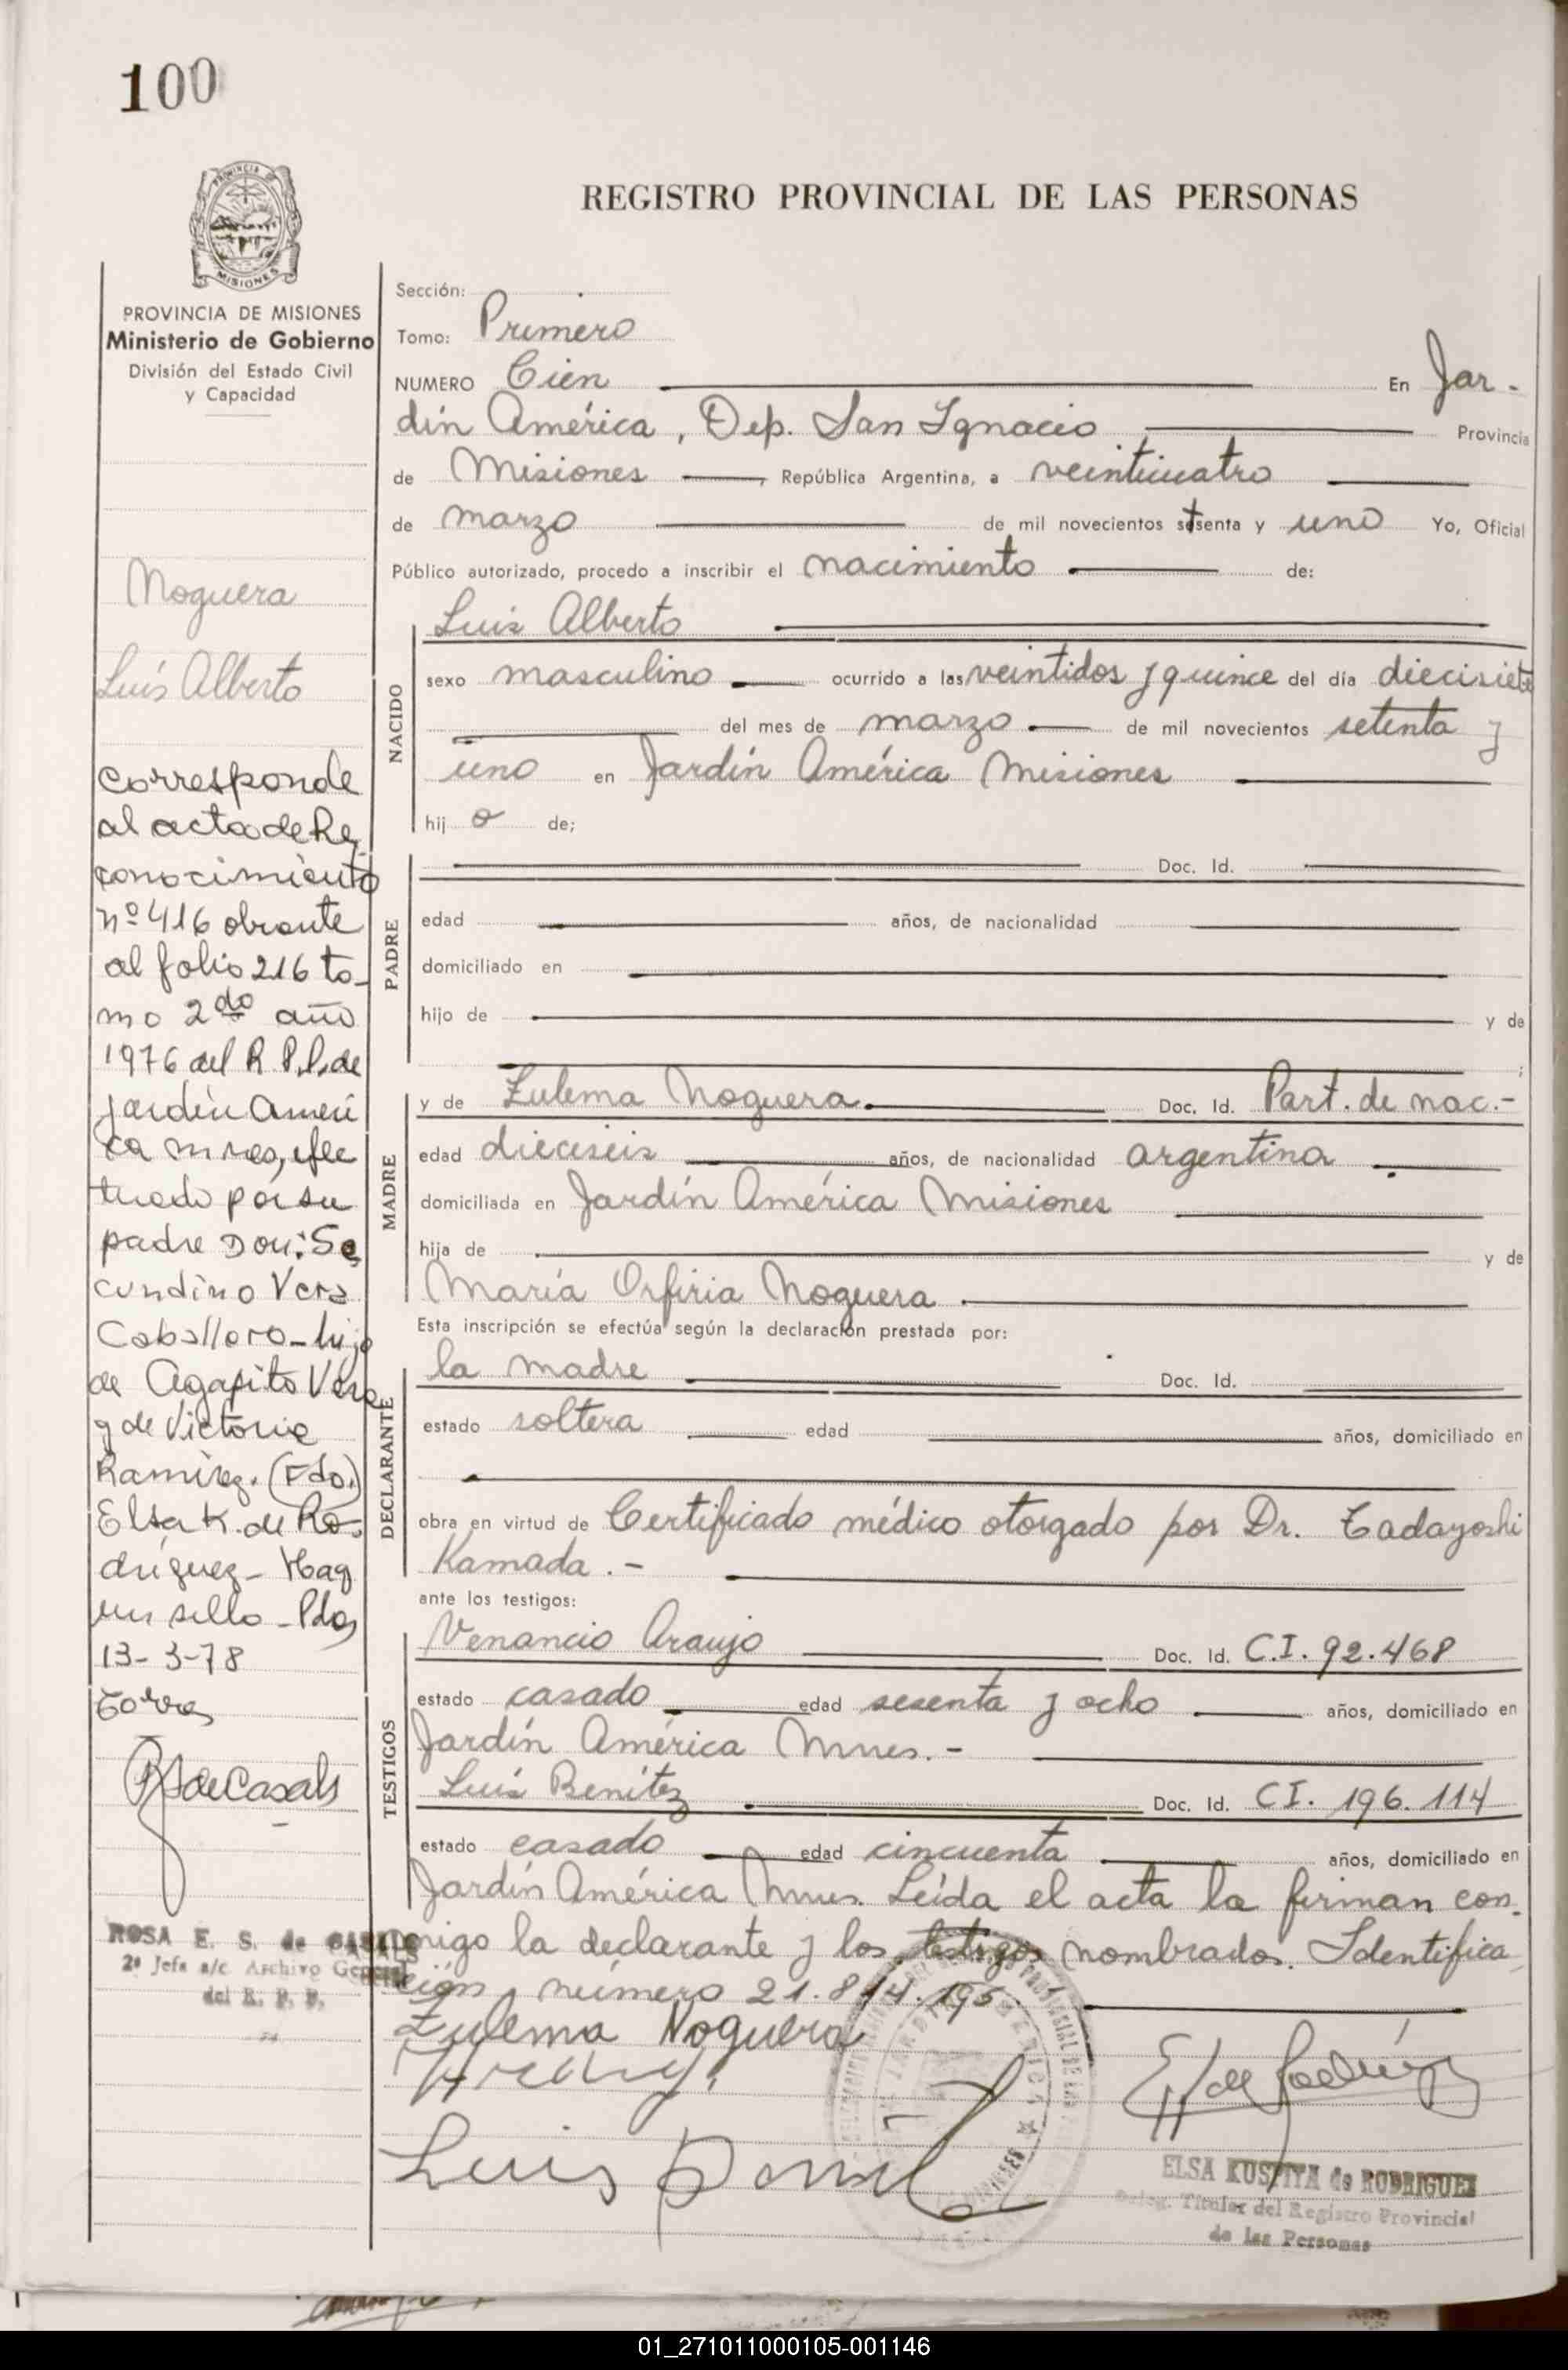 100
REGISTRO PROVINCIAL DE LAS PERSONAS
MISIONES
PROVINCIA DE MISIONES
Ministerio de Gobierno
División del Estado Civil
y Capacidad
Noguera
Luis Alberto
Corresponde
al acta de Re
conocimiento
nº 416 obrante
al folio 216 to-
mo 2do año
1976 del R.P.P. de
Jardín Améri
ca mnes, efec
tuado por su
padre Don: Se
cundino Vera
Caballero - hijo
de Agapito Vera
y de Victoria
Ramírez. (Fdo.)
Elsa K. de Ro-
dríguez - Hay
un sello - Pdas
13-3-78
ROSA E. S. de CASALS
2ª Jefa a/c Archivo General
del R. P. P.
Sección:
Tomo: Primero
NUMERO Cien En Jar-
dín América, Dep. San Ignacio Provincia
de Misiones, República Argentina, a veinticuatro
de marzo de mil novecientos setenta y uno Yo, Oficial
Público autorizado, procedo a inscribir el nacimiento de:
NACIDO
Luis Alberto
sexo masculino ocurrido a las veintidos y quince del día diecisiete
del mes de marzo de mil novecientos setenta y
uno en Jardín América Misiones
hij o de;
PADRE
Doc. Id.
edad años, de nacionalidad
domiciliado en
hijo de y de
;
MADRE
y de Zulema Noguera. Doc. Id. Part. de nac.-
edad dieciseis años, de nacionalidad argentina
domiciliada en Jardín América Misiones
hija de y de
María Orfiria Noguera.
Esta inscripción se efectúa según la declaración prestada por:
DECLARANTE
la madre Doc. Id.
estado soltera edad años, domiciliado en
obra en virtud de Certificado médico otorgado por Dr. Tadayoshi
Kamada.-
ante los testigos:
TESTIGOS
Venancio Araujo Doc. Id. C.I. 92.468
estado casado edad sesenta y ocho años, domiciliado en
Jardín América Mnes.-
Luis Benítez Doc. Id. CI. 196.114
estado casado edad cincuenta años, domiciliado en
Jardín América Mnes. Leída el acta la firman con-
migo la declarante y los testigos nombrados. Identifica
ción, número 21.814.195
Zulema Noguera
Luis
ELSA KUSPITA de RODRIGUEZ
Deleg. Titular del Registro Provincial
de las Personas
01_271011000105-001146